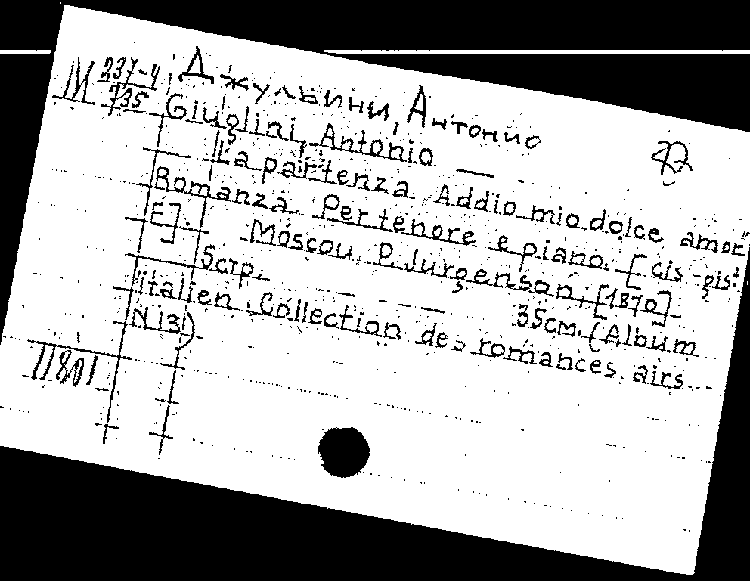 М 237-4/735
Джульини, Антонио
Giuglini, Antonio
La partenza Addio mio dolce amor"
Romanza. Per tenore e piano. [Cis-gis:
E].
Moscou, P. Jurgenson, [1870].
5стр. 35см. (Album
italien. Collection des romances, airs...
N 13)
11801